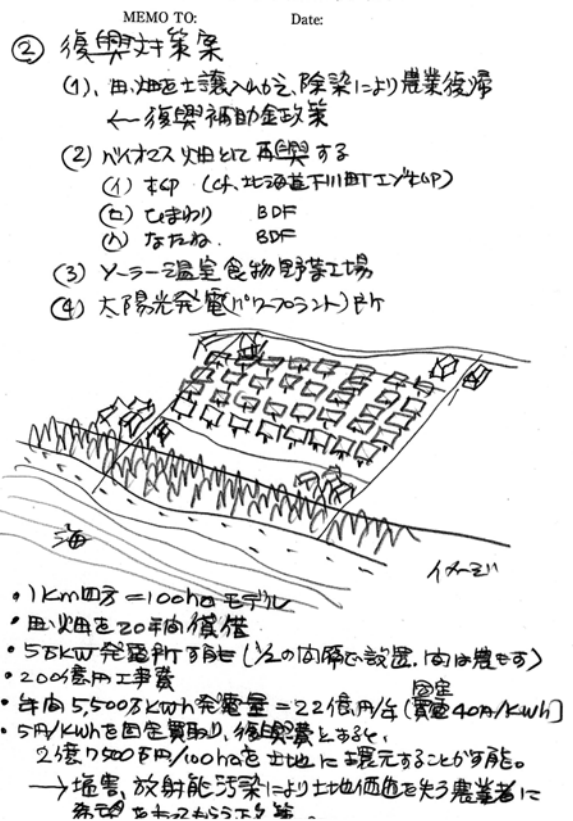 MEMO TO: Date:
② 復興対策案
(1)、田、畑を土壌入れかえ、除染により農業復帰
← 復興補助金政策
(2) バイオマス畑として再興する
(イ) (cf、北海道下川町エゾ
(ロ) ひまわり BDF
(ハ) なたね. BDF
(3) ソーラー温室食物野菜工場
(4) 太陽光発電(パワープラント)所
海
イメージ
・1km四方=100haモデル
・田、畑を20年間償借
・5万KW発電所可能(1/2の間隔で設置、間は農もす)
・200億円工事費
・年間5,500万kwh発電量=22億円/年(固定買電40円/kwh]
・5円/kwhを固定買取り、復興費とすると、
2億7500万円/100haを土地に還元することが可能。
→ 塩害、放射能汚染により土地価値を失う農業者に
希望をもってもらう